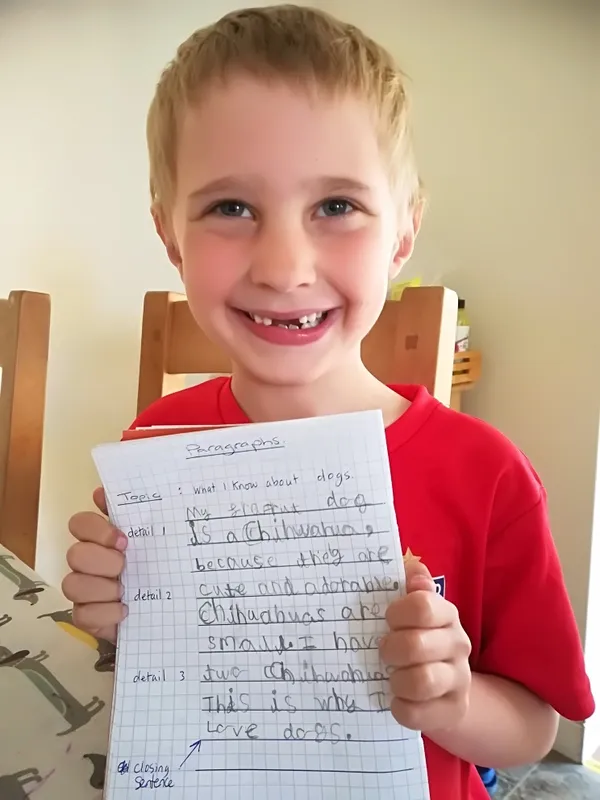 Paragraphs.
Topic : What I know about dogs.
My dog
detail 1 is a Chihuahua,
because they are
detail 2 cute and adorable.
Chihuahuas are
small. I have
detail 3 two Chihuahua
This is why I
Love dogs.
closing
sentence